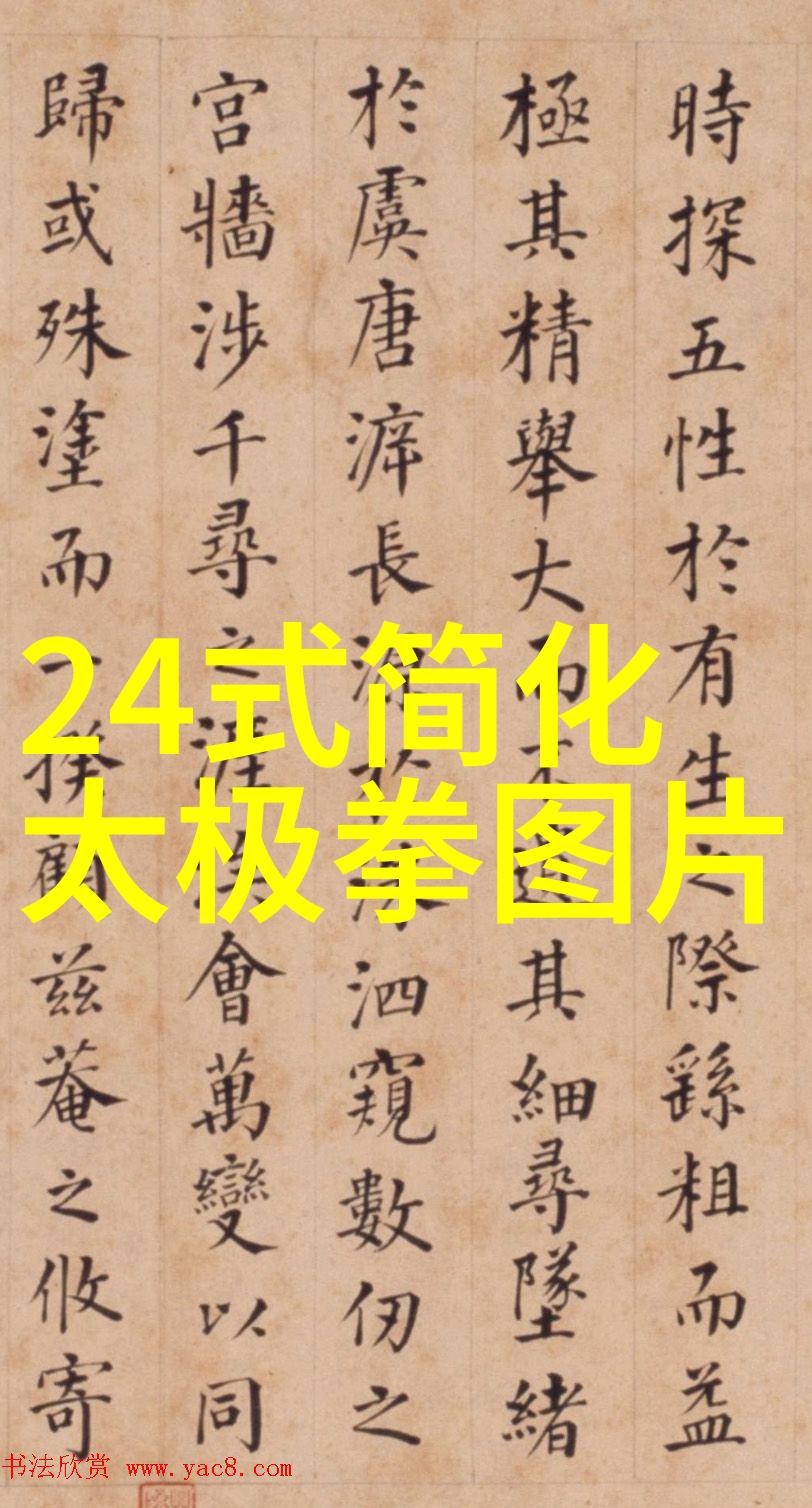 時探五性於有生之際繇粗而益
極其精舉大而不遺其細尋墜緒
於虞唐長源於洙泗窺數仞之
宮牆涉千尋之涯涘會萬變以同
歸或殊塗而一揆顧茲菴之攸寄
24式简化
太极拳图片
书法欣赏 www.yac8.com